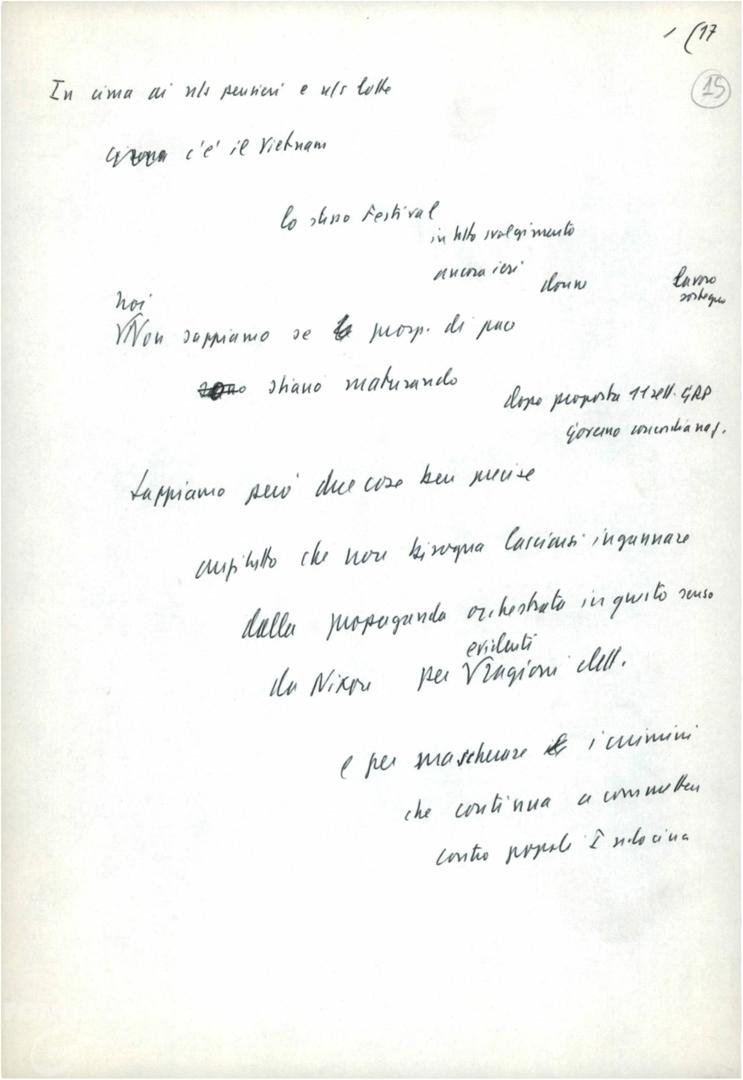 1 (17
15
In cima ai n/s pensieri e n/s lotte
c'è il Vietnam
lo stesso Festival
in tutto svolgimento
ancora ieri donne lavoro
sostegno
noi
Non sappiamo se prosp. di pace
sono stiano maturando
dopo proposta 11 sett. GRP
governo concordia naz.
Sappiamo però due cose ben precise
anzitutto che non bisogna lasciarsi ingannare
dalla propaganda orchestrata in questo senso
evidenti
da Nixon per ragioni elett.
e per mascherare i crimini
che continua a commettere
contro popoli Indocina